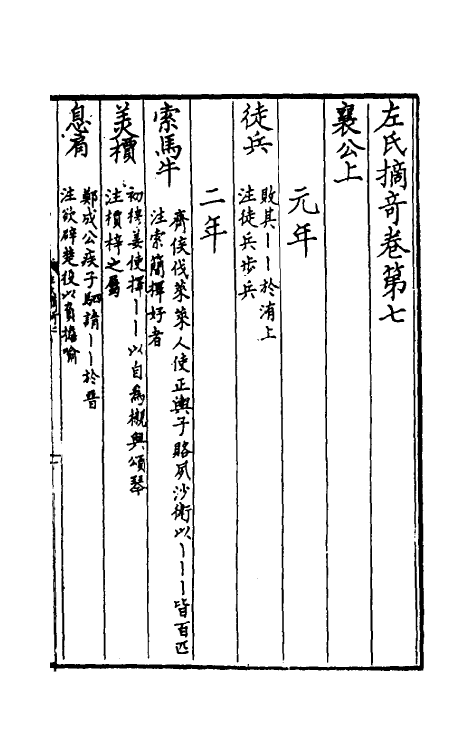 左氏摘奇卷第七
襄公上
元年
徒兵
敗其丨丨於洧上
注徒兵步兵
二年
索馬牛
齊侯伐萊萊人使正輿子賂夙沙衛以丨丨丨皆百匹
注索簡擇好者
美檟
初穆姜使擇丨丨以自為櫬與頌琴
注檟梓之屬
息肩
鄭成公疾子駟請丨丨於晉
注欲辟楚役以負擔喻